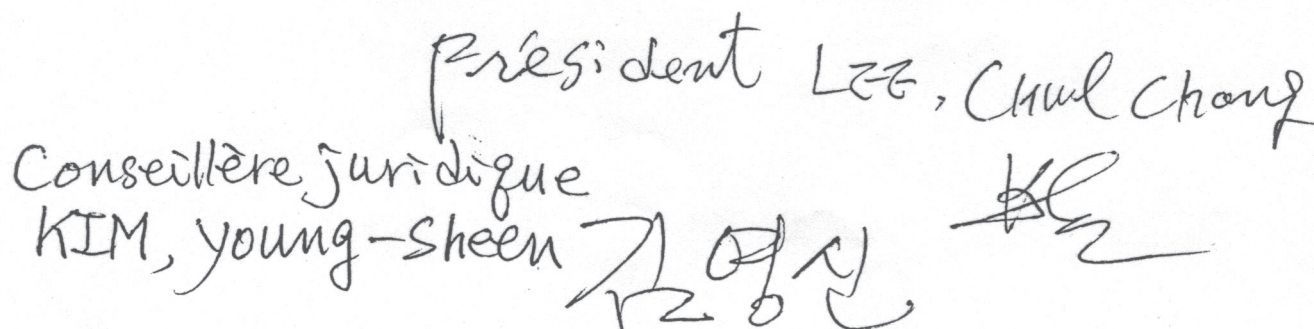 Président LEE, Chul Chong
Conseillère juridique
KIM, young-Sheen 김영신